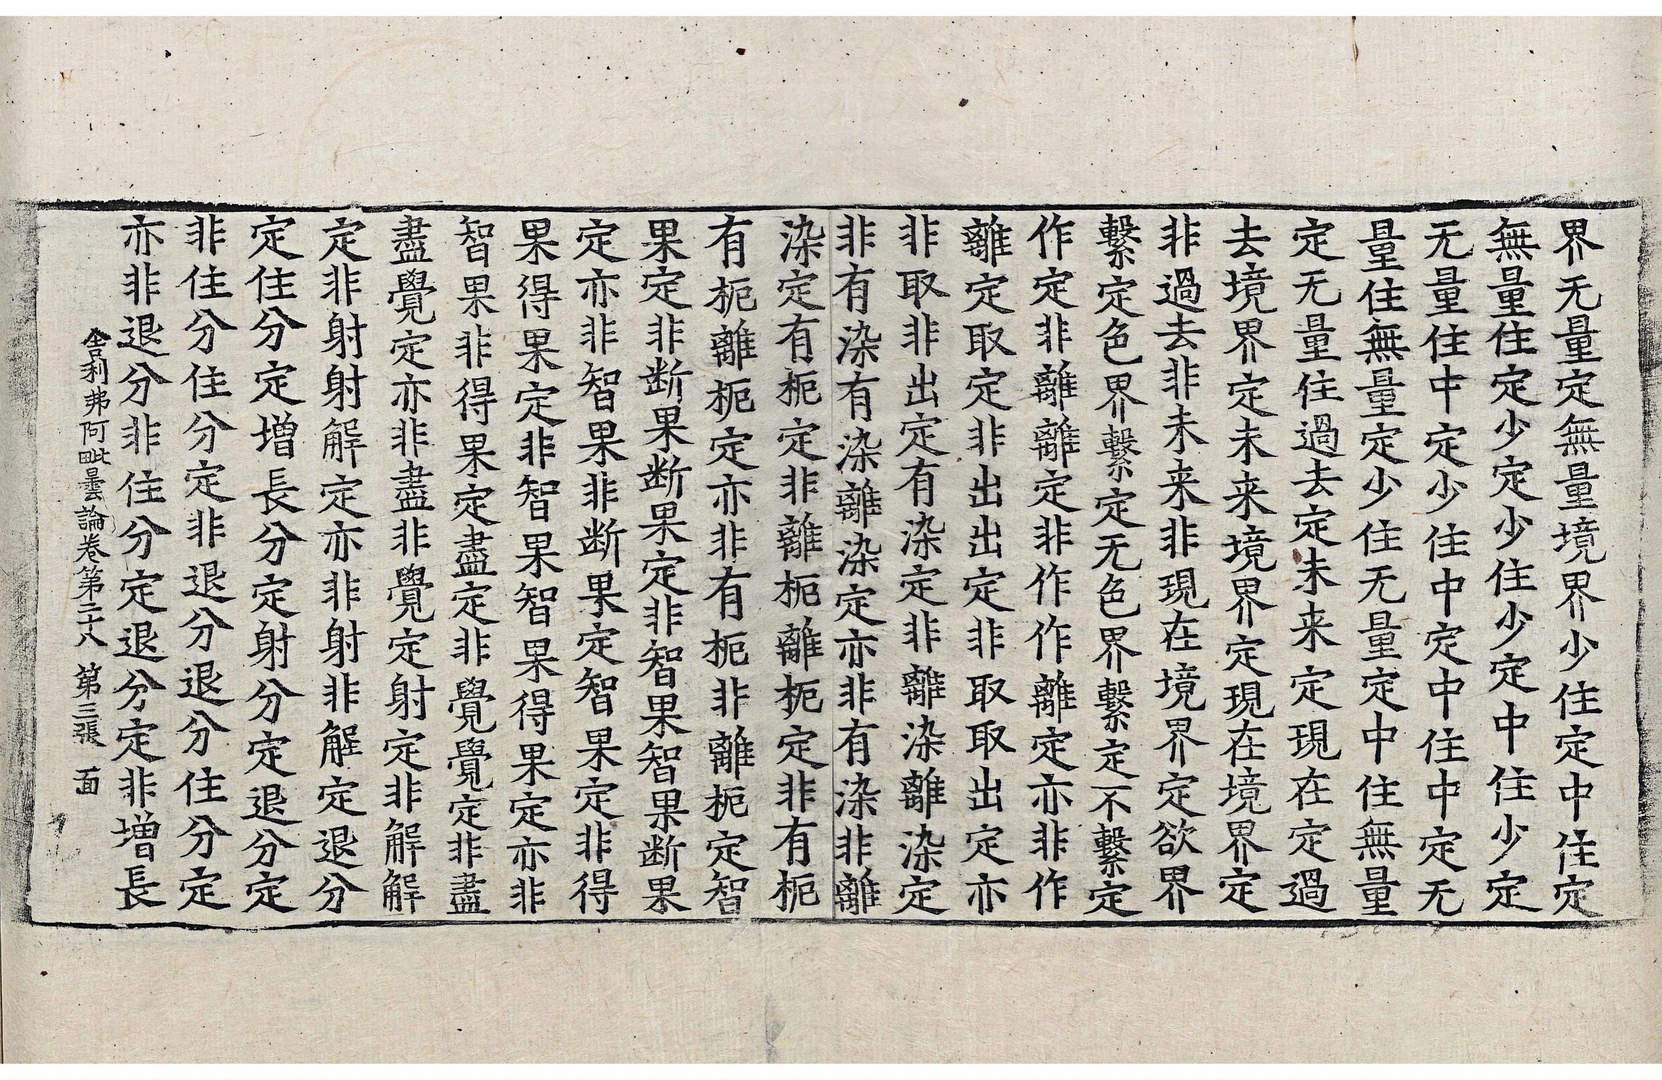 界无量定無量境界少住定中住定
無量住定少定少住少定中住少定
无量住中定少住中定中住中定无
量住無量定少住无量定中住無量
定无量住過去定未来定現在定過
去境界定未来境界定現在境界定
非過去非未来非現在境界定欲界
繫定色界繫定无色界繫定不繫定
作定非離離定非作作離定亦非作
離定取定非出出定非取取出定亦
非取非出定有染定非離染離染定
非有染有染離染定亦非有染非離
染定有枙定非離枙離枙定非有枙
有枙離枙定亦非有枙非離枙定智
果定非断果断果定非智果智果断果
定亦非智果非断果定智果定非得
果得果定非智果智果得果定亦非
智果非得果定盡定非覺覺定非盡
盡覺定亦非盡非覺定射定非解解
定非射射解定亦非射非解定退分
定住分定增長分定射分定退分定
非住分住分定非退分退分住分定
亦非退分非住分定退分定非增長
舍利弗阿毗曇論卷第二十八 第三張 面